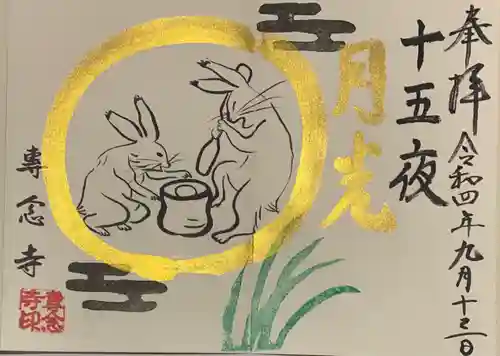 奉拝 令和四年九月十三日
十五夜
月光
專念寺
專念
寺印